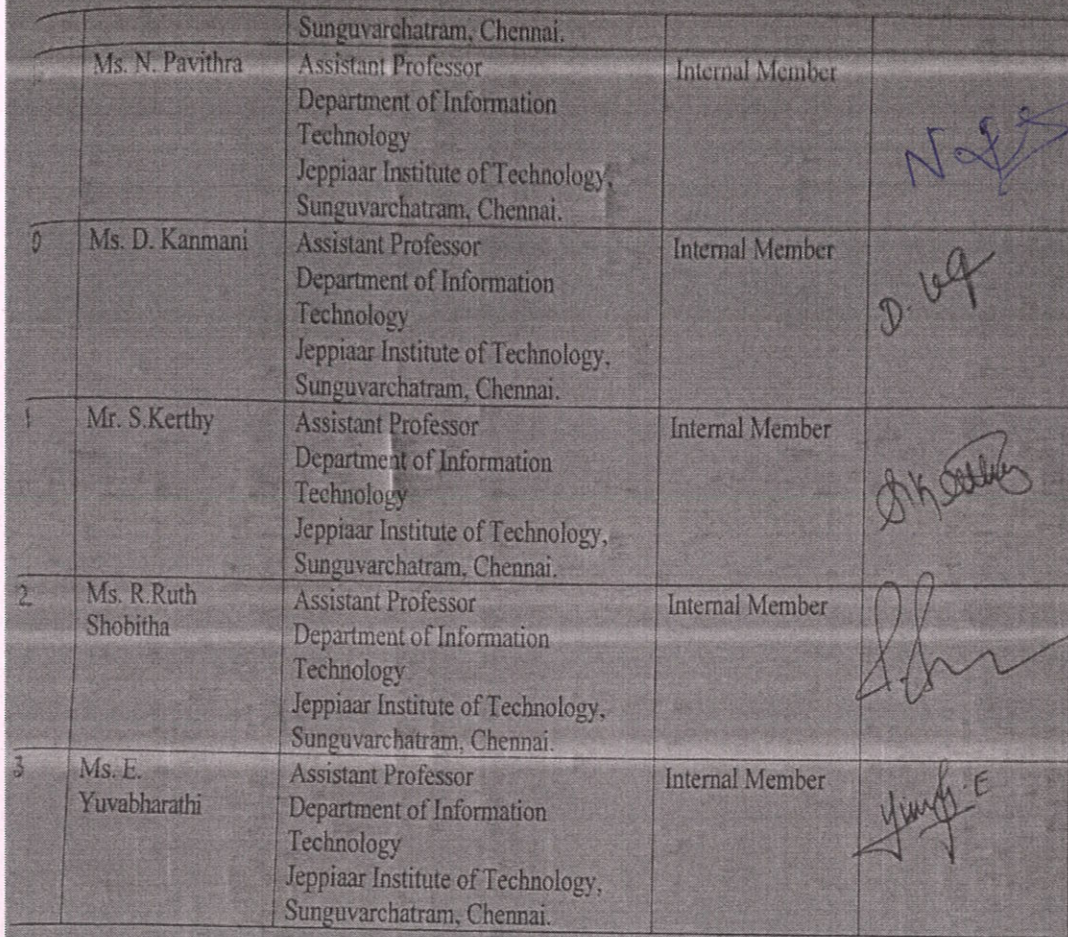 Sunguvarchatram, Chennai.
Ms. N. Pavithra
Assistant Professor
Department of Information
Technology
Jeppiaar Institute of Technology,
Sunguvarchatram, Chennai.
Internal Member
0
Ms. D. Kanmani
Assistant Professor
Department of Information
Technology
Jeppiaar Institute of Technology,
Sunguvarchatram, Chennai.
Internal Member
D.
1
Mr. S.Kerthy
Assistant Professor
Department of Information
Technology
Jeppiaar Institute of Technology,
Sunguvarchatram, Chennai.
Internal Member
2
Ms. R.Ruth
Shobitha
Assistant Professor
Department of Information
Technology
Jeppiaar Institute of Technology,
Sunguvarchatram, Chennai.
Internal Member
3
Ms. E.
Yuvabharathi
Assistant Professor
Department of Information
Technology
Jeppiaar Institute of Technology,
Sunguvarchatram, Chennai.
Internal Member
E